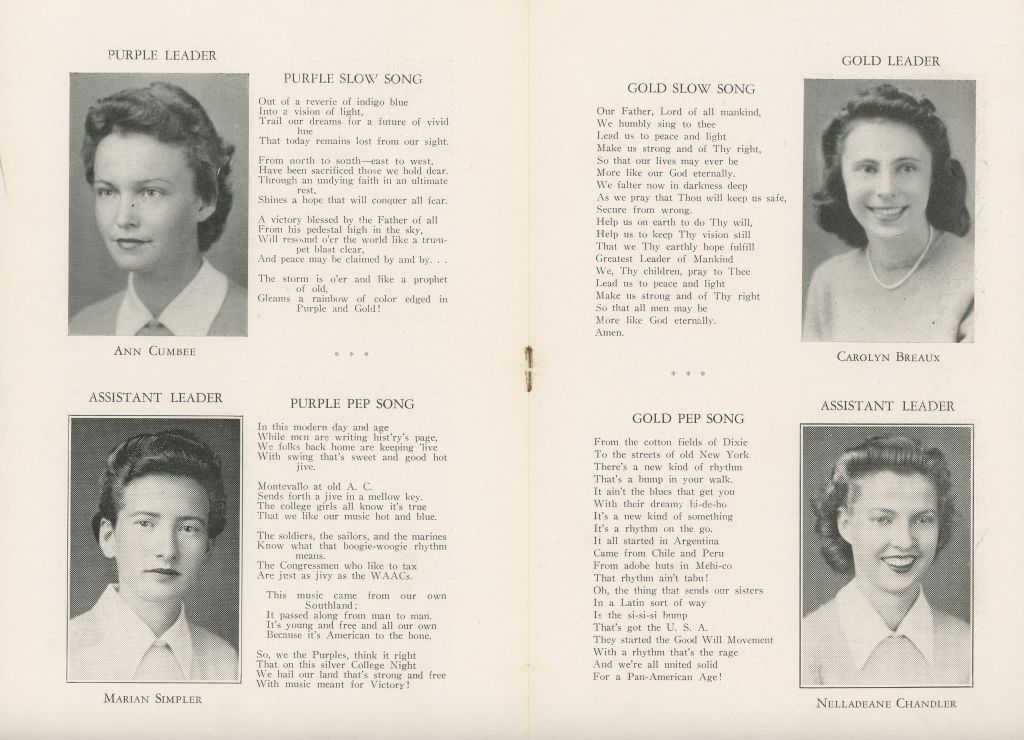 PURPLE LEADER
ANN CUMBEE
ASSISTANT LEADER
MARIAN SIMPLER
PURPLE SLOW SONG
Out of a reverie of indigo blue
Into a vision of light,
Trail our dreams for a future of vivid
hue
That today remains lost from our sight.
From north to south—east to west,
Have been sacrificed those we hold dear.
Through an undying faith in an ultimate
rest,
Shines a hope that will conquer all fear.
A victory blessed by the Father of all
From his pedestal high in the sky,
Will resound o'er the world like a trum-
pet blast clear,
And peace may be claimed by and by. . .
The storm is o'er and like a prophet
of old,
Gleams a rainbow of color edged in
Purple and Gold!
* * *
PURPLE PEP SONG
In this modern day and age
While men are writing hist'ry's page,
We folks back home are keeping 'live
With swing that's sweet and good hot
jive.
Montevallo at old A. C.
Sends forth a jive in a mellow key.
The college girls all know it's true
That we like our music hot and blue.
The soldiers, the sailors, and the marines
Know what that boogie-woogie rhythm
means.
The Congressmen who like to tax
Are just as jivy as the WAACs.
This music came from our own
Southland;
It passed along from man to man.
It's young and free and all our own
Because it's American to the bone.
So, we the Purples, think it right
That on this silver College Night
We hail our land that's strong and free
With music meant for Victory!
GOLD SLOW SONG
Our Father, Lord of all mankind,
We humbly sing to thee
Lead us to peace and light
Make us strong and of Thy right,
So that our lives may ever be
More like our God eternally.
We falter now in darkness deep
As we pray that Thou will keep us safe,
Secure from wrong.
Help us on earth to do Thy will,
Help us to keep Thy vision still
That we Thy earthly hope fulfill
Greatest Leader of Mankind
We, Thy children, pray to Thee
Lead us to peace and light
Make us strong and of Thy right
So that all men may be
More like God eternally.
Amen.
* * *
GOLD PEP SONG
From the cotton fields of Dixie
To the streets of old New York
There's a new kind of rhythm
That's a bump in your walk.
It ain't the blues that get you
With their dreamy hi-de-ho
It's a new kind of something
It's a rhythm on the go.
It all started in Argentina
Came from Chile and Peru
From adobe huts in Mehi-co
That rhythm ain't tabu!
Oh, the thing that sends our sisters
In a Latin sort of way
Is the si-si-si bump
That's got the U. S. A.
They started the Good Will Movement
With a rhythm that's the rage
And we're all united solid
For a Pan-American Age!
GOLD LEADER
CAROLYN BREAUX
ASSISTANT LEADER
NELLADEANE CHANDLER